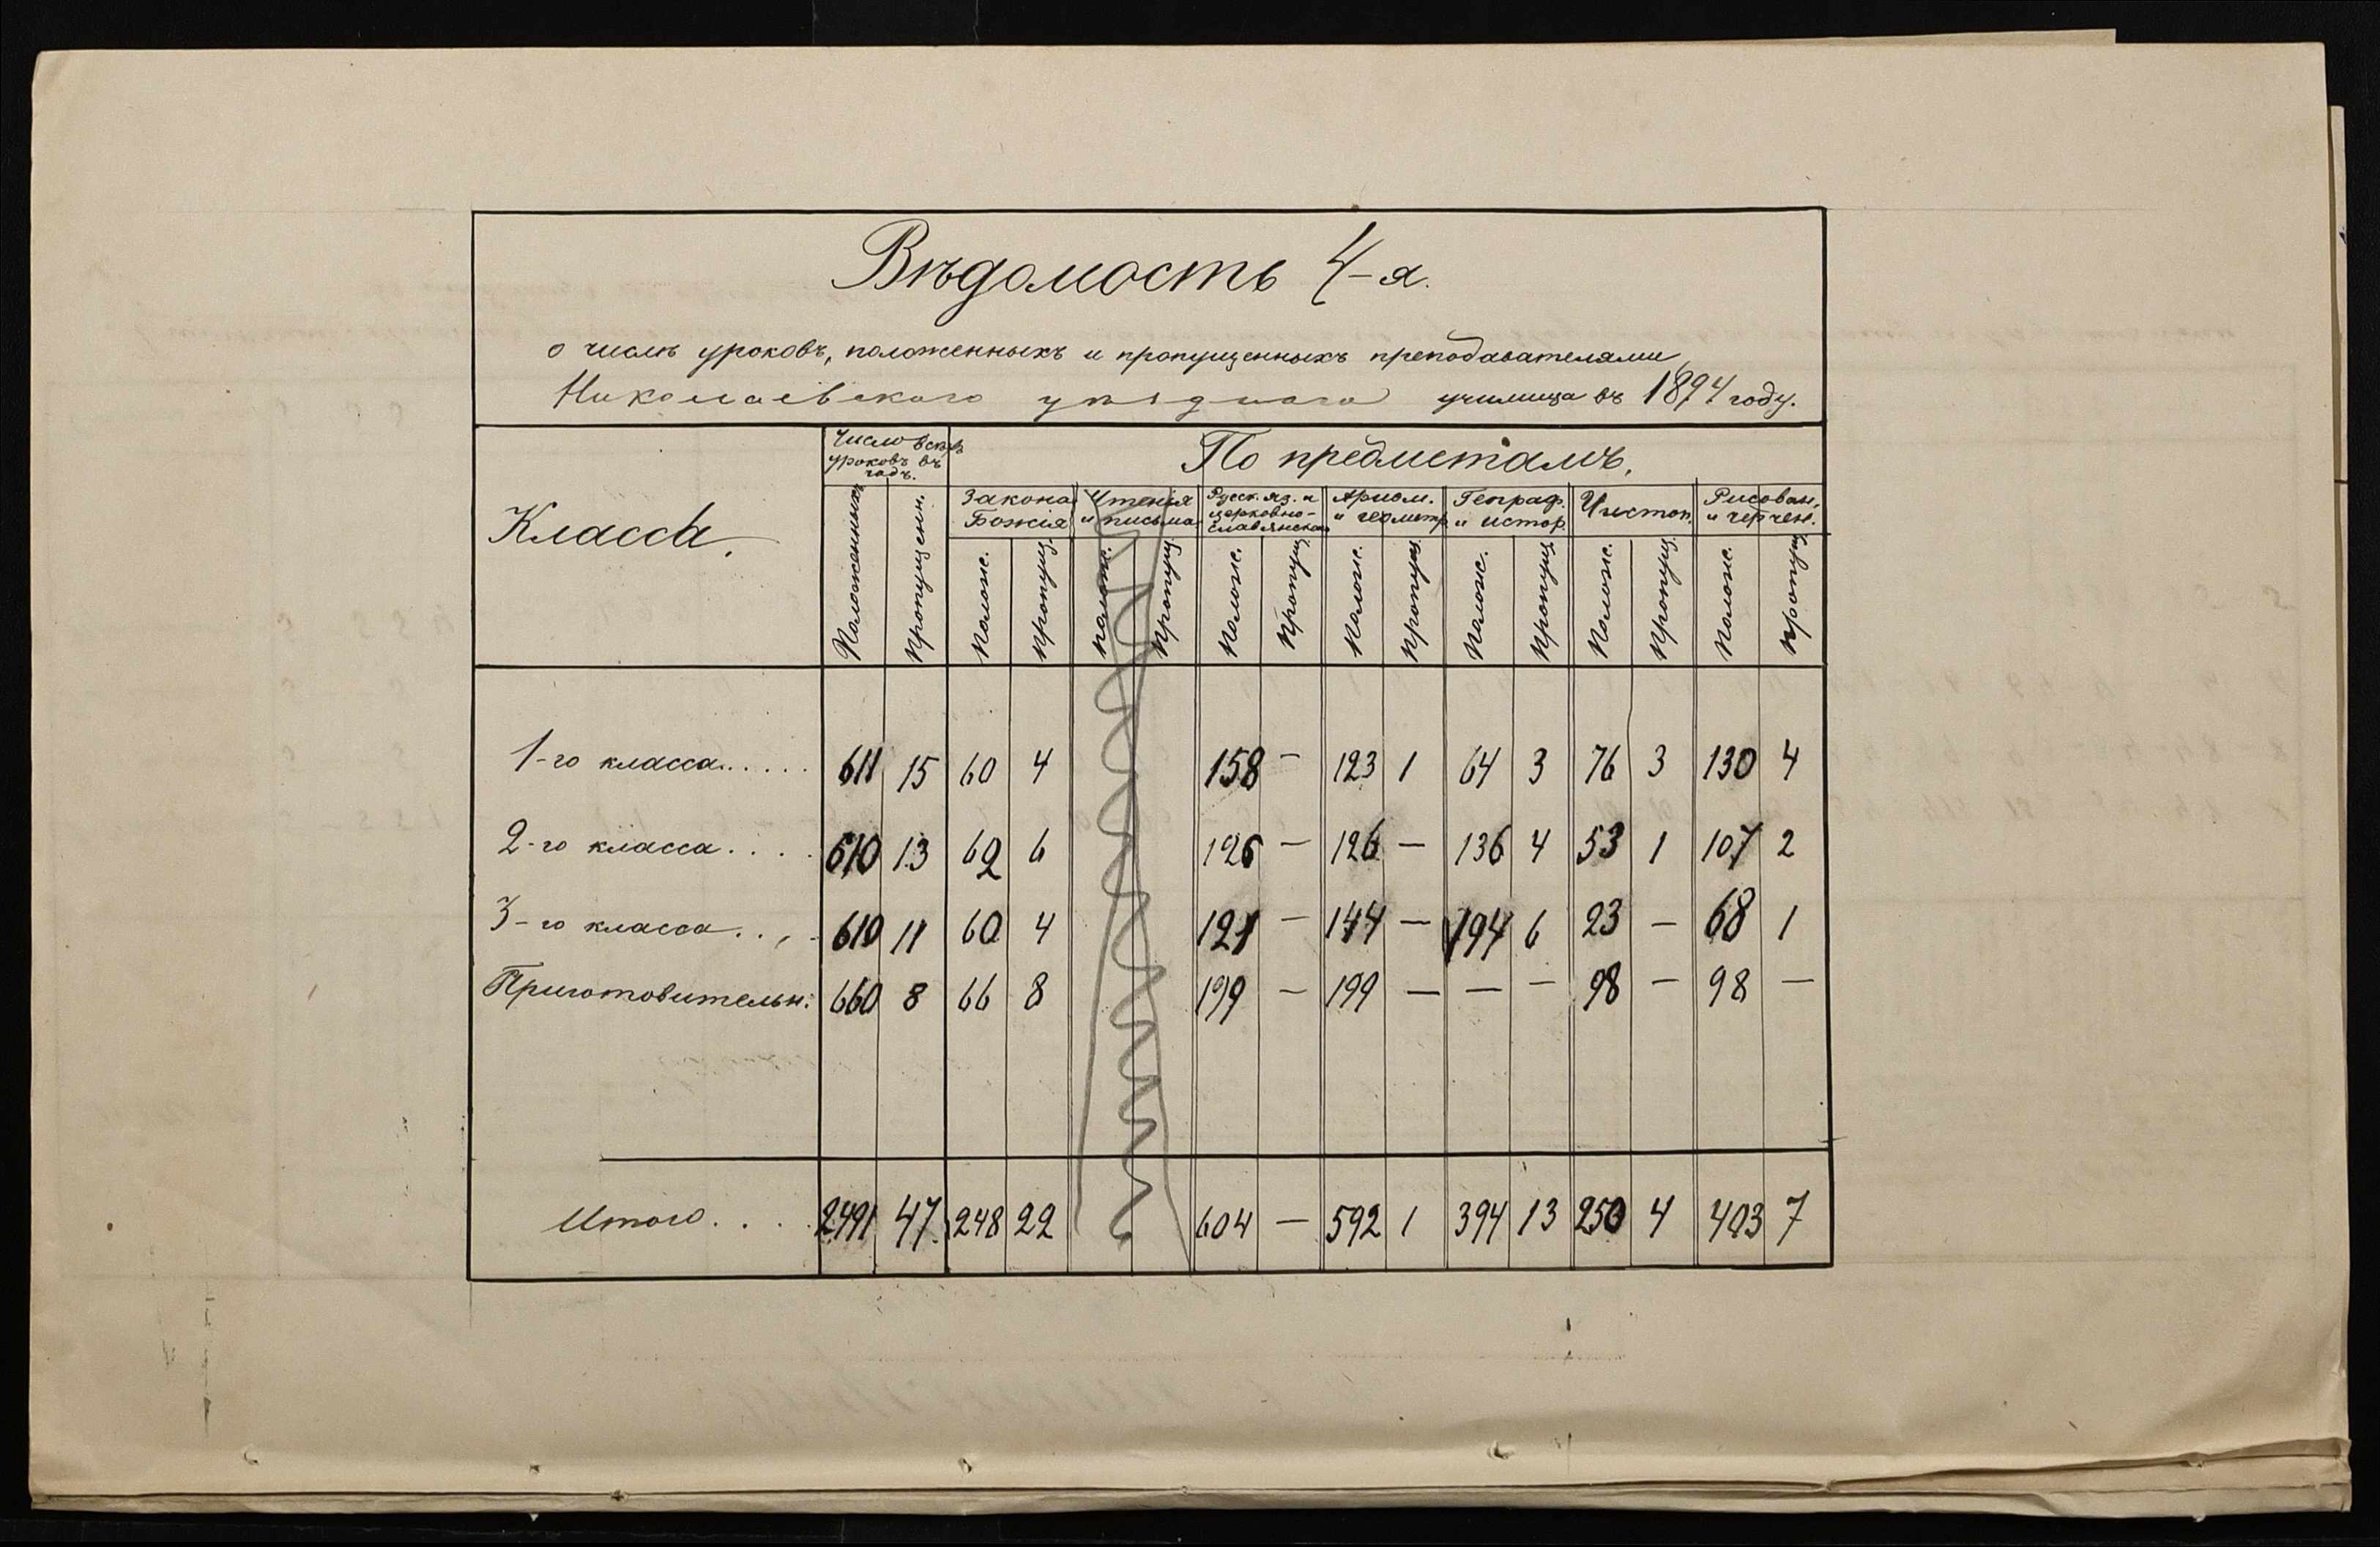 Вѣдомость 4-я.
о числѣ уроковъ, положенныхъ и пропущенныхъ преподавателями
Николаевскаго уѣзднаго училища въ 1894 году.
Классы. Число всѣхъ уроковъ въ годъ. По предметамъ.
Закона Божія Чтенія и письма Русск. яз. и церковно-славянскаго Ариѳм. и геометр. Географ. и истор. Чистоп. Рисован. и черчен.
Положенныхъ Пропущенн. Полож. Пропущ. Полож. Пропущ. Полож. Пропущ. Полож. Пропущ. Полож. Пропущ. Полож. Пропущ. Полож. Пропущ.
1-го класса..... 611 15 60 4 158 — 123 1 64 3 76 3 130 4
2-го класса.... 610 13 62 6 126 — 126 — 136 4 53 1 107 2
3-го класса... 610 11 60 4 121 — 144 — 194 6 23 — 68 1
Приготовительн. 660 8 66 8 199 — 199 — — — 98 — 98 —
Итого.... 2491 47 248 22 604 — 592 1 394 13 250 4 403 7